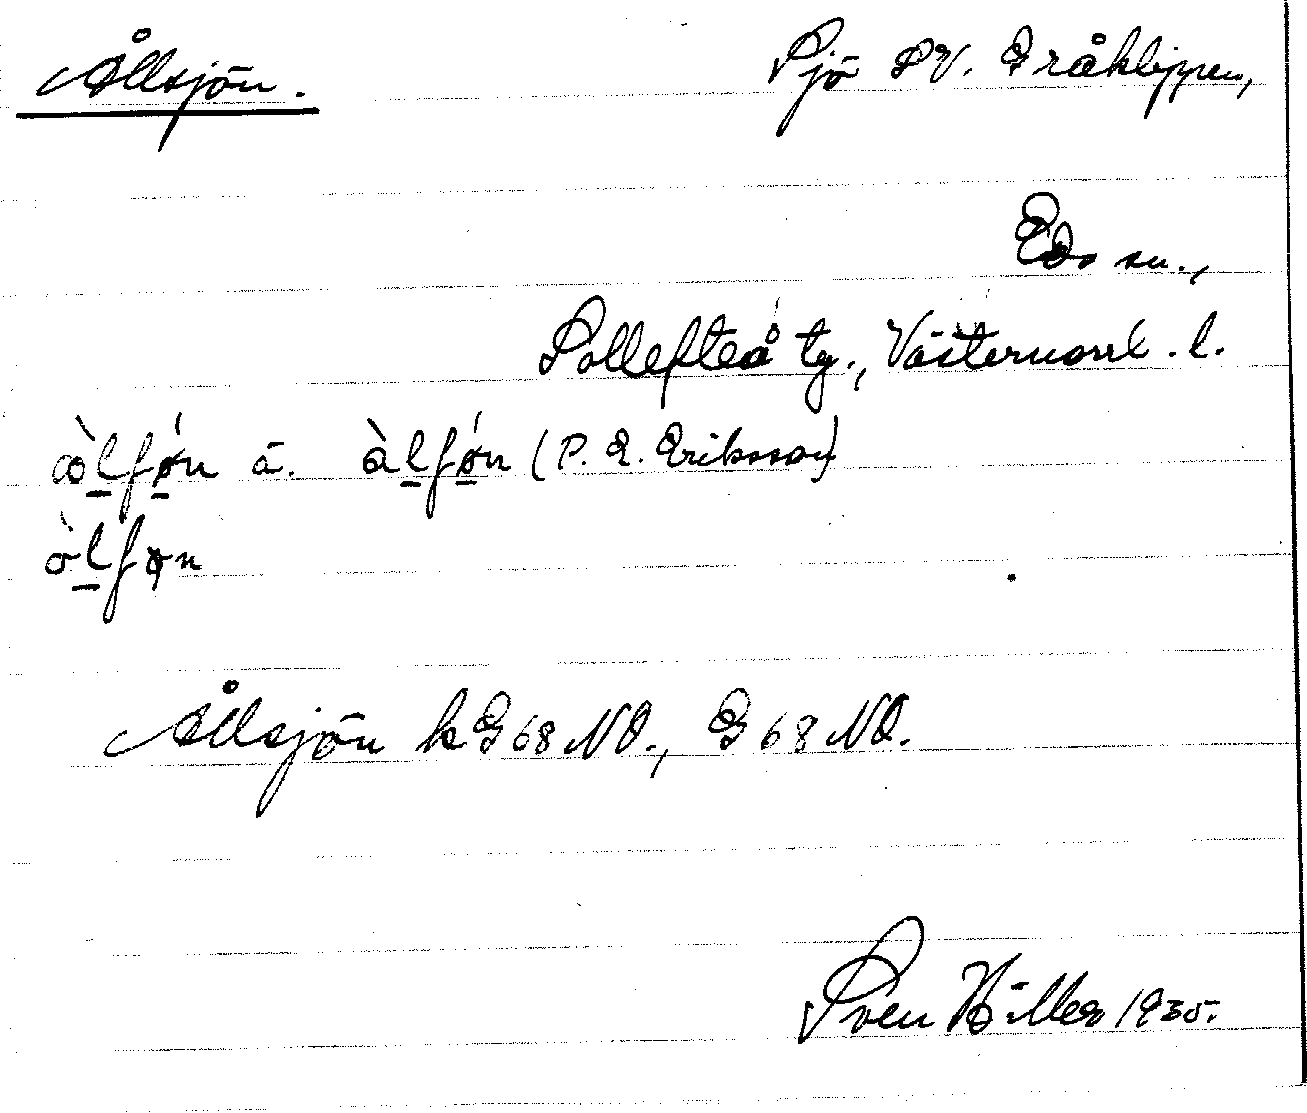 Ållsjön. Sjö SV. Gråklippen,
Eds sn.,
Sollefteå tg., Västernorrl. l.
ɷ̀lʃǿn ä. àlʃǿn (P. E. Eriksson)
òlʃøn
Ållsjön k G 68 NO., G 68 NO.
Sven Hiller 1935.